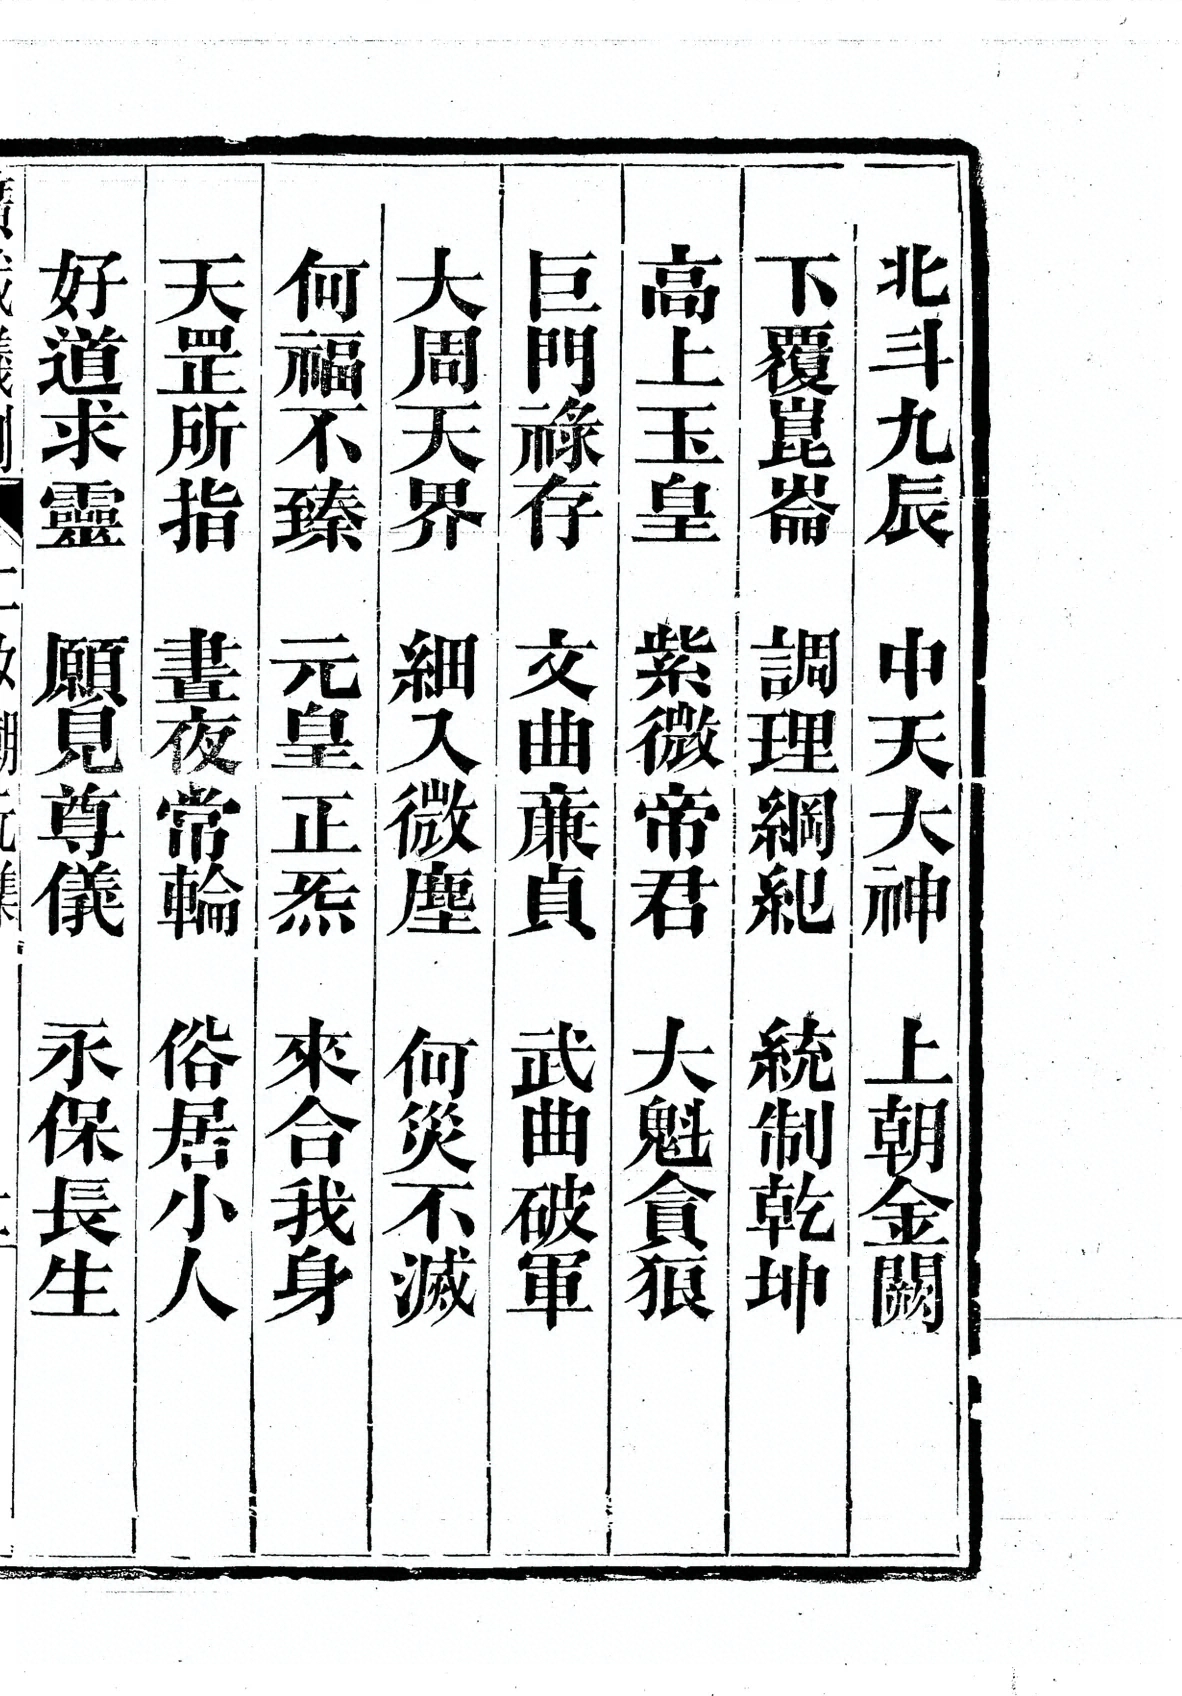 北斗九辰　中天大神　上朝金闕
下覆崑崙　調理綱紀　統制乾坤
高上玉皇　紫微帝君　大魁貪狼
巨門祿存　文曲廉貞　武曲破軍
大周天界　細入微塵　何災不滅
何福不臻　元皇正炁　來合我身
天罡所指　晝夜常輪　俗居小人
好道求靈　願見尊儀　永保長生